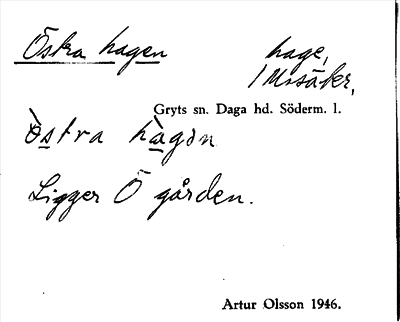 Östra hagen
hage,
Gryts sn. Daga hd. Söderm. l.
òstra hàgən
Ligger Ö gården.
Artur Olsson 1946.